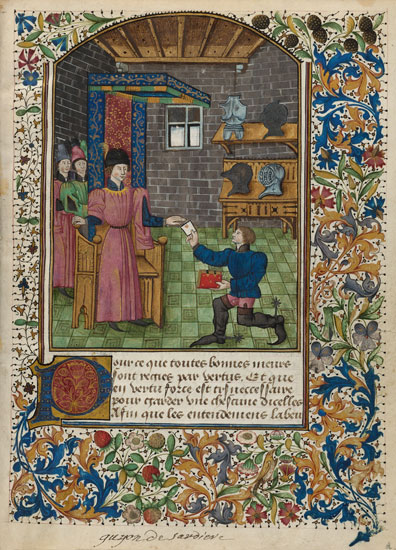 Pour ce que toutes bonnes meurs
sont regies par vertus. Et que
en vertu force est tresnecessaire
pour garder une chascune dicelles
Afin que les entendemens labeu
guyon de sardiere